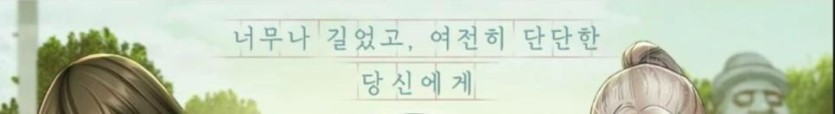 너무나 길었고, 여전히 단단한
당신에게